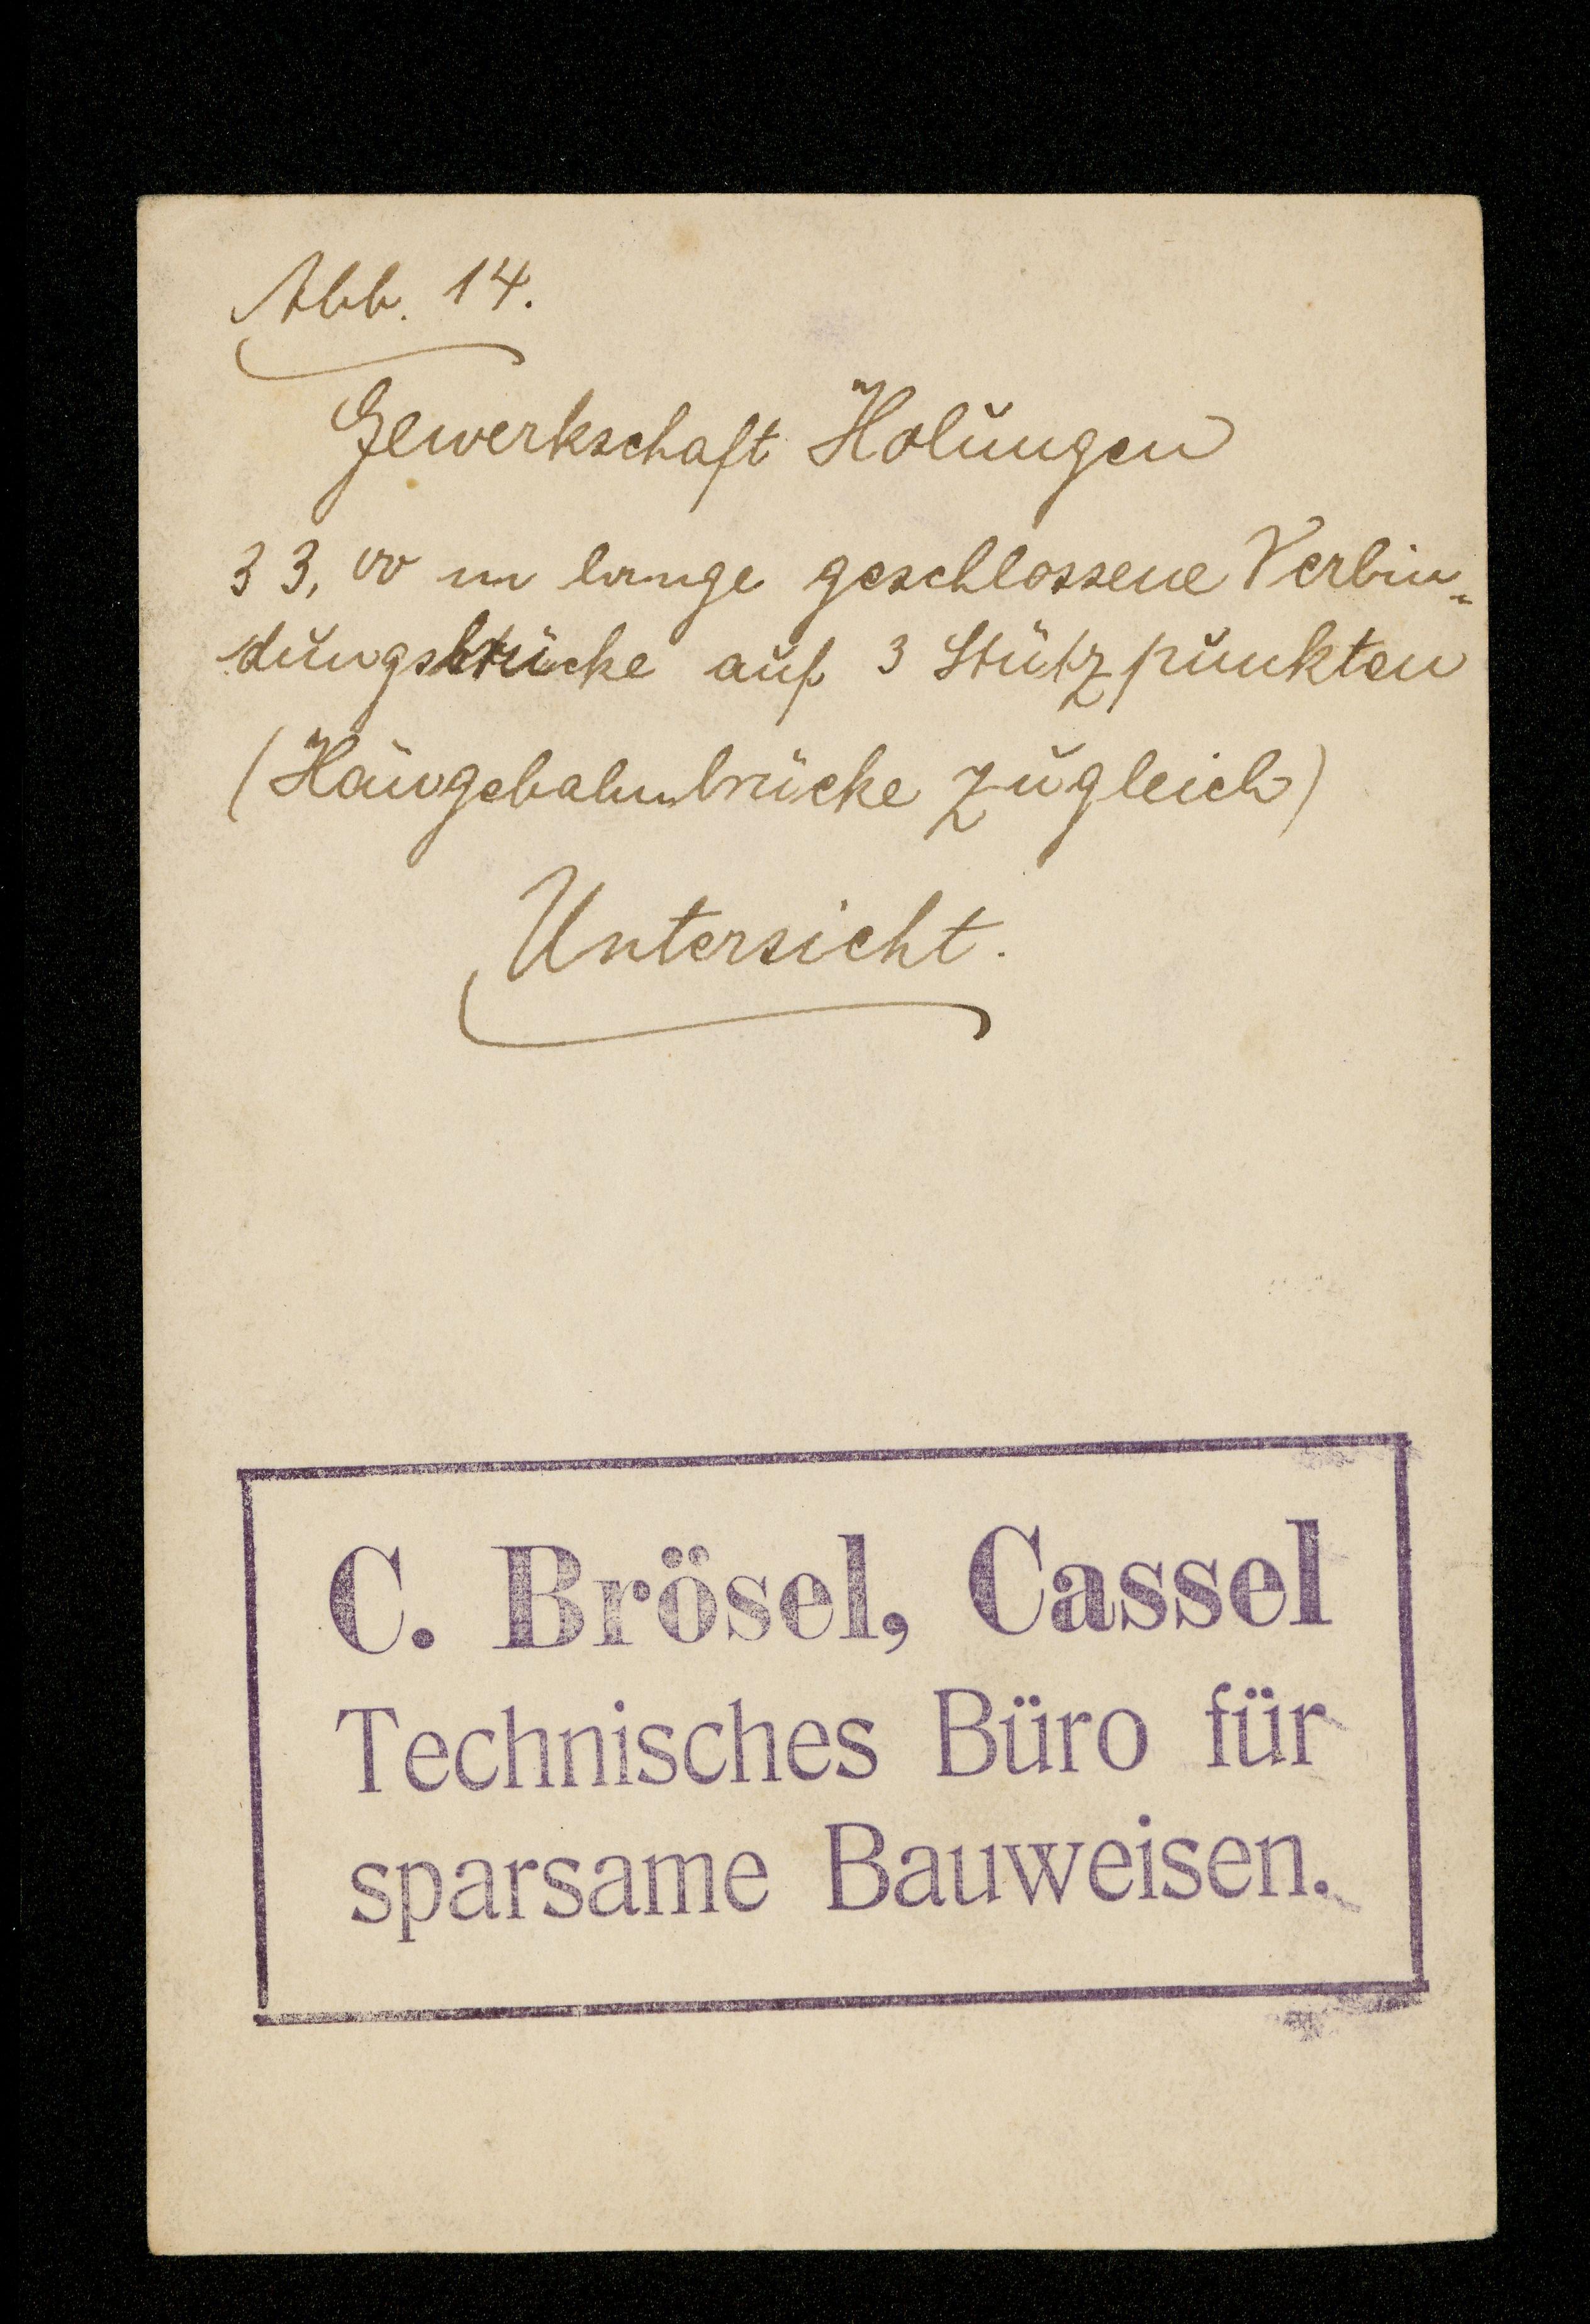 Abb. 14.
Gewerkschaft Holungen
33,00 m lange geschlossene Verbin-
dungsbrücke auf 3 Stützpunkten
(Hängebahnbrücke zugleich)
Untersicht.
C. Brösel, Cassel
Technisches Büro für
sparsame Bauweisen.